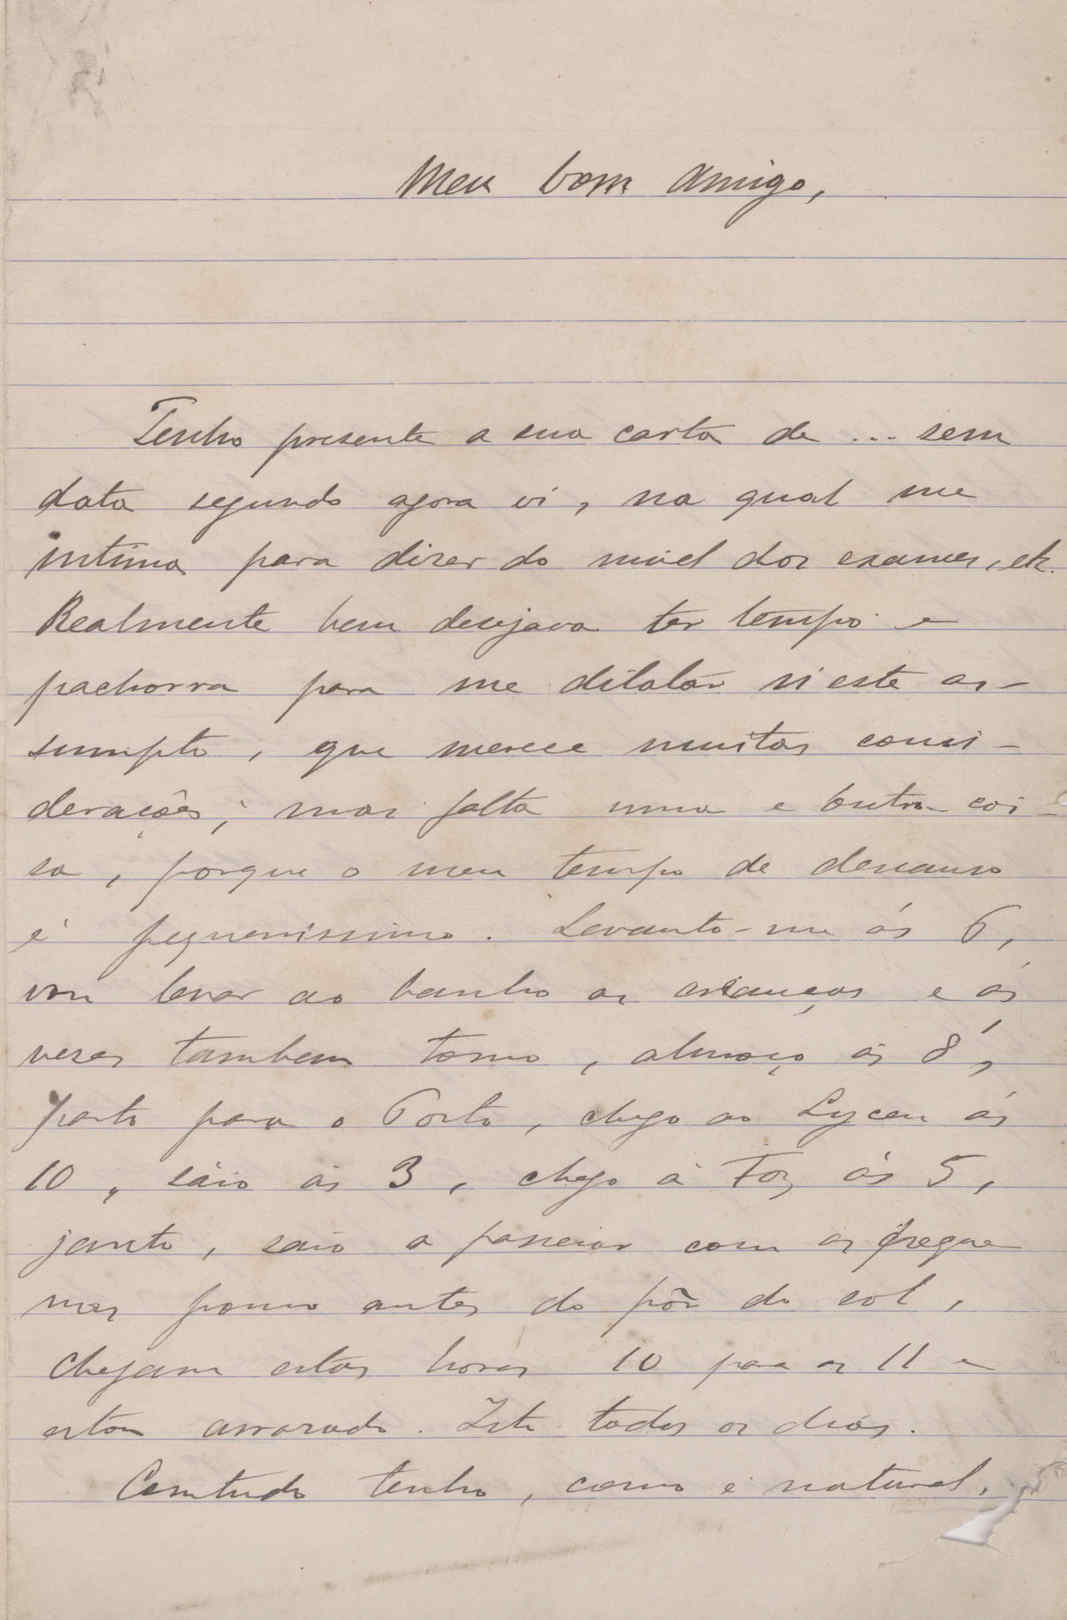 Meu bom Amigo,
Tenho presente a sua carta de ... sem
data segundo agora vi, na qual me
intima para dizer do nivel dos exames, etc.
Realmente bem desejava ter tempo e
pachorra para me dilatar n'este as-
sumpto, que merece muitas consi-
derações; mas falta uma e outra coi-
sa, porque o meu tempo de descanso
é pequenissimo. Levanto-me ás 6,
vou levar ao banho as crianças e ás
vezes tambem tomo, almoço ás 8,
parto para o Porto, chego ao Lyceu ás
10, sáio ás 3, chego á Foz ás 5,
janto, saio a passeiar com os peque
nos pouco antes do pôr do sol,
chegam estas horas 10 para as 11 e
estou arrazado. Isto todos os dias.
Comtudo tenho, como é natural,